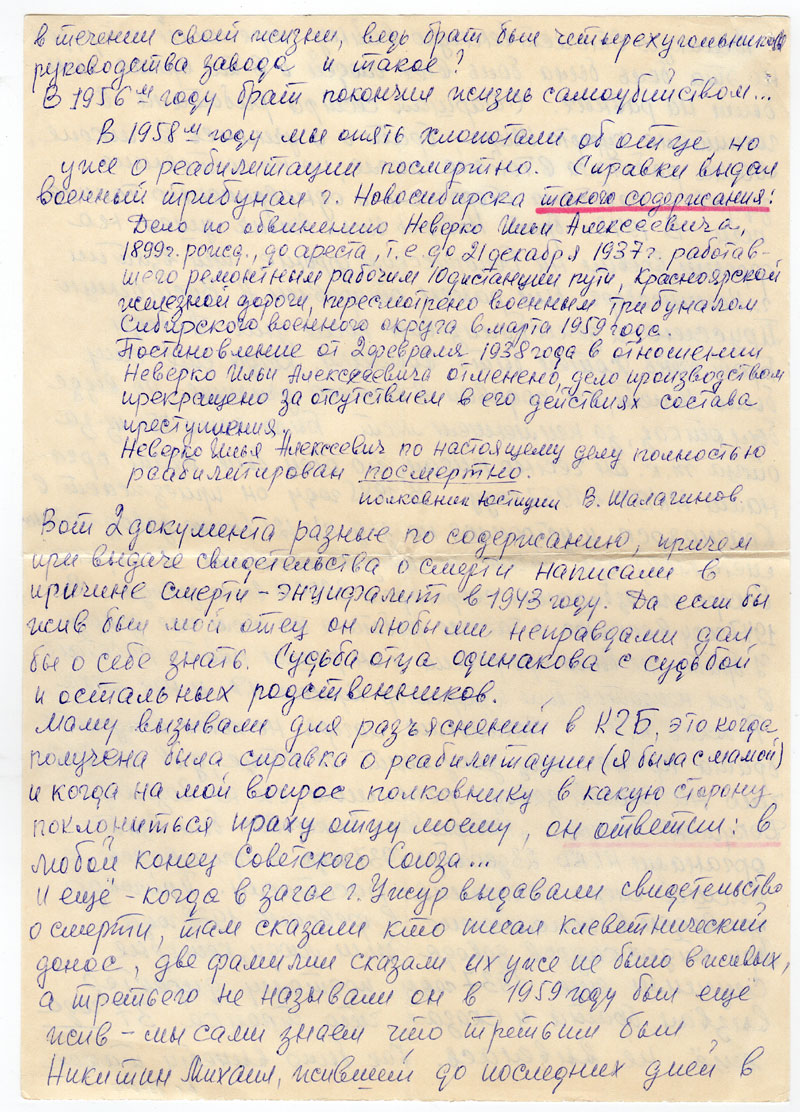 в течении своей жизни, ведь брат был четырехугольником
руководства завода и такое?
В 1956м году брат покончил жизнь самоубийством...
В 1958м году мы опять хлопотали об отце, но
уже о реабилитации посмертно. Справки выдал
военный трибунал г. Новосибирска такого содержания:
Дело по обвинению Неверко Ильи Алексеевича,
1899г. рожд., до ареста, т.е. до 21 декабря 1937г. работав-
шего ремонтным рабочим 10 дистанции пути, Красноярской
железной дороги, пересмотрено военным трибуналом
Сибирского военного округа в марта 1959 года
Постановление от 2 февраля 1938 года в отношении
Неверко Ильи Алексеевича отменено, дело производством
прекращено за отсутствием в его действиях состава
преступления.
Неверко Илья Алексеевич по настоящему делу полностью
реабилитирован посмертно.
полковник юстиции В. Шалагинов
Вот 2 документа разные по содержанию, причем
при выдаче свидетельства о смерти написали в
причине смерти – энцифалит в 1943 году. Да если бы
жив был мой отец он любыми неправдами дал
бы о себе знать. Судьба отца одинакова с судьбой
и остальных родственников.
Маму вызывали для разъяснений в КГБ, это когда
получена была справка о реабилитации (я была с мамой)
и когда на мой вопрос полковнику в какую сторону
поклониться праху отцу моему, он ответил: в
любой конец Советского Союза...
И ещё – когда в загсе г. Ужур выдавали свидетельство
о смерти, там сказали кто писал клеветнический
донос, две фамилии сказали их уже не было в живых,
а третьего не называли он в 1959 году был ещё
жив – мы сами знаем что третьим был
Никитин Михаил, живший до последних дней в